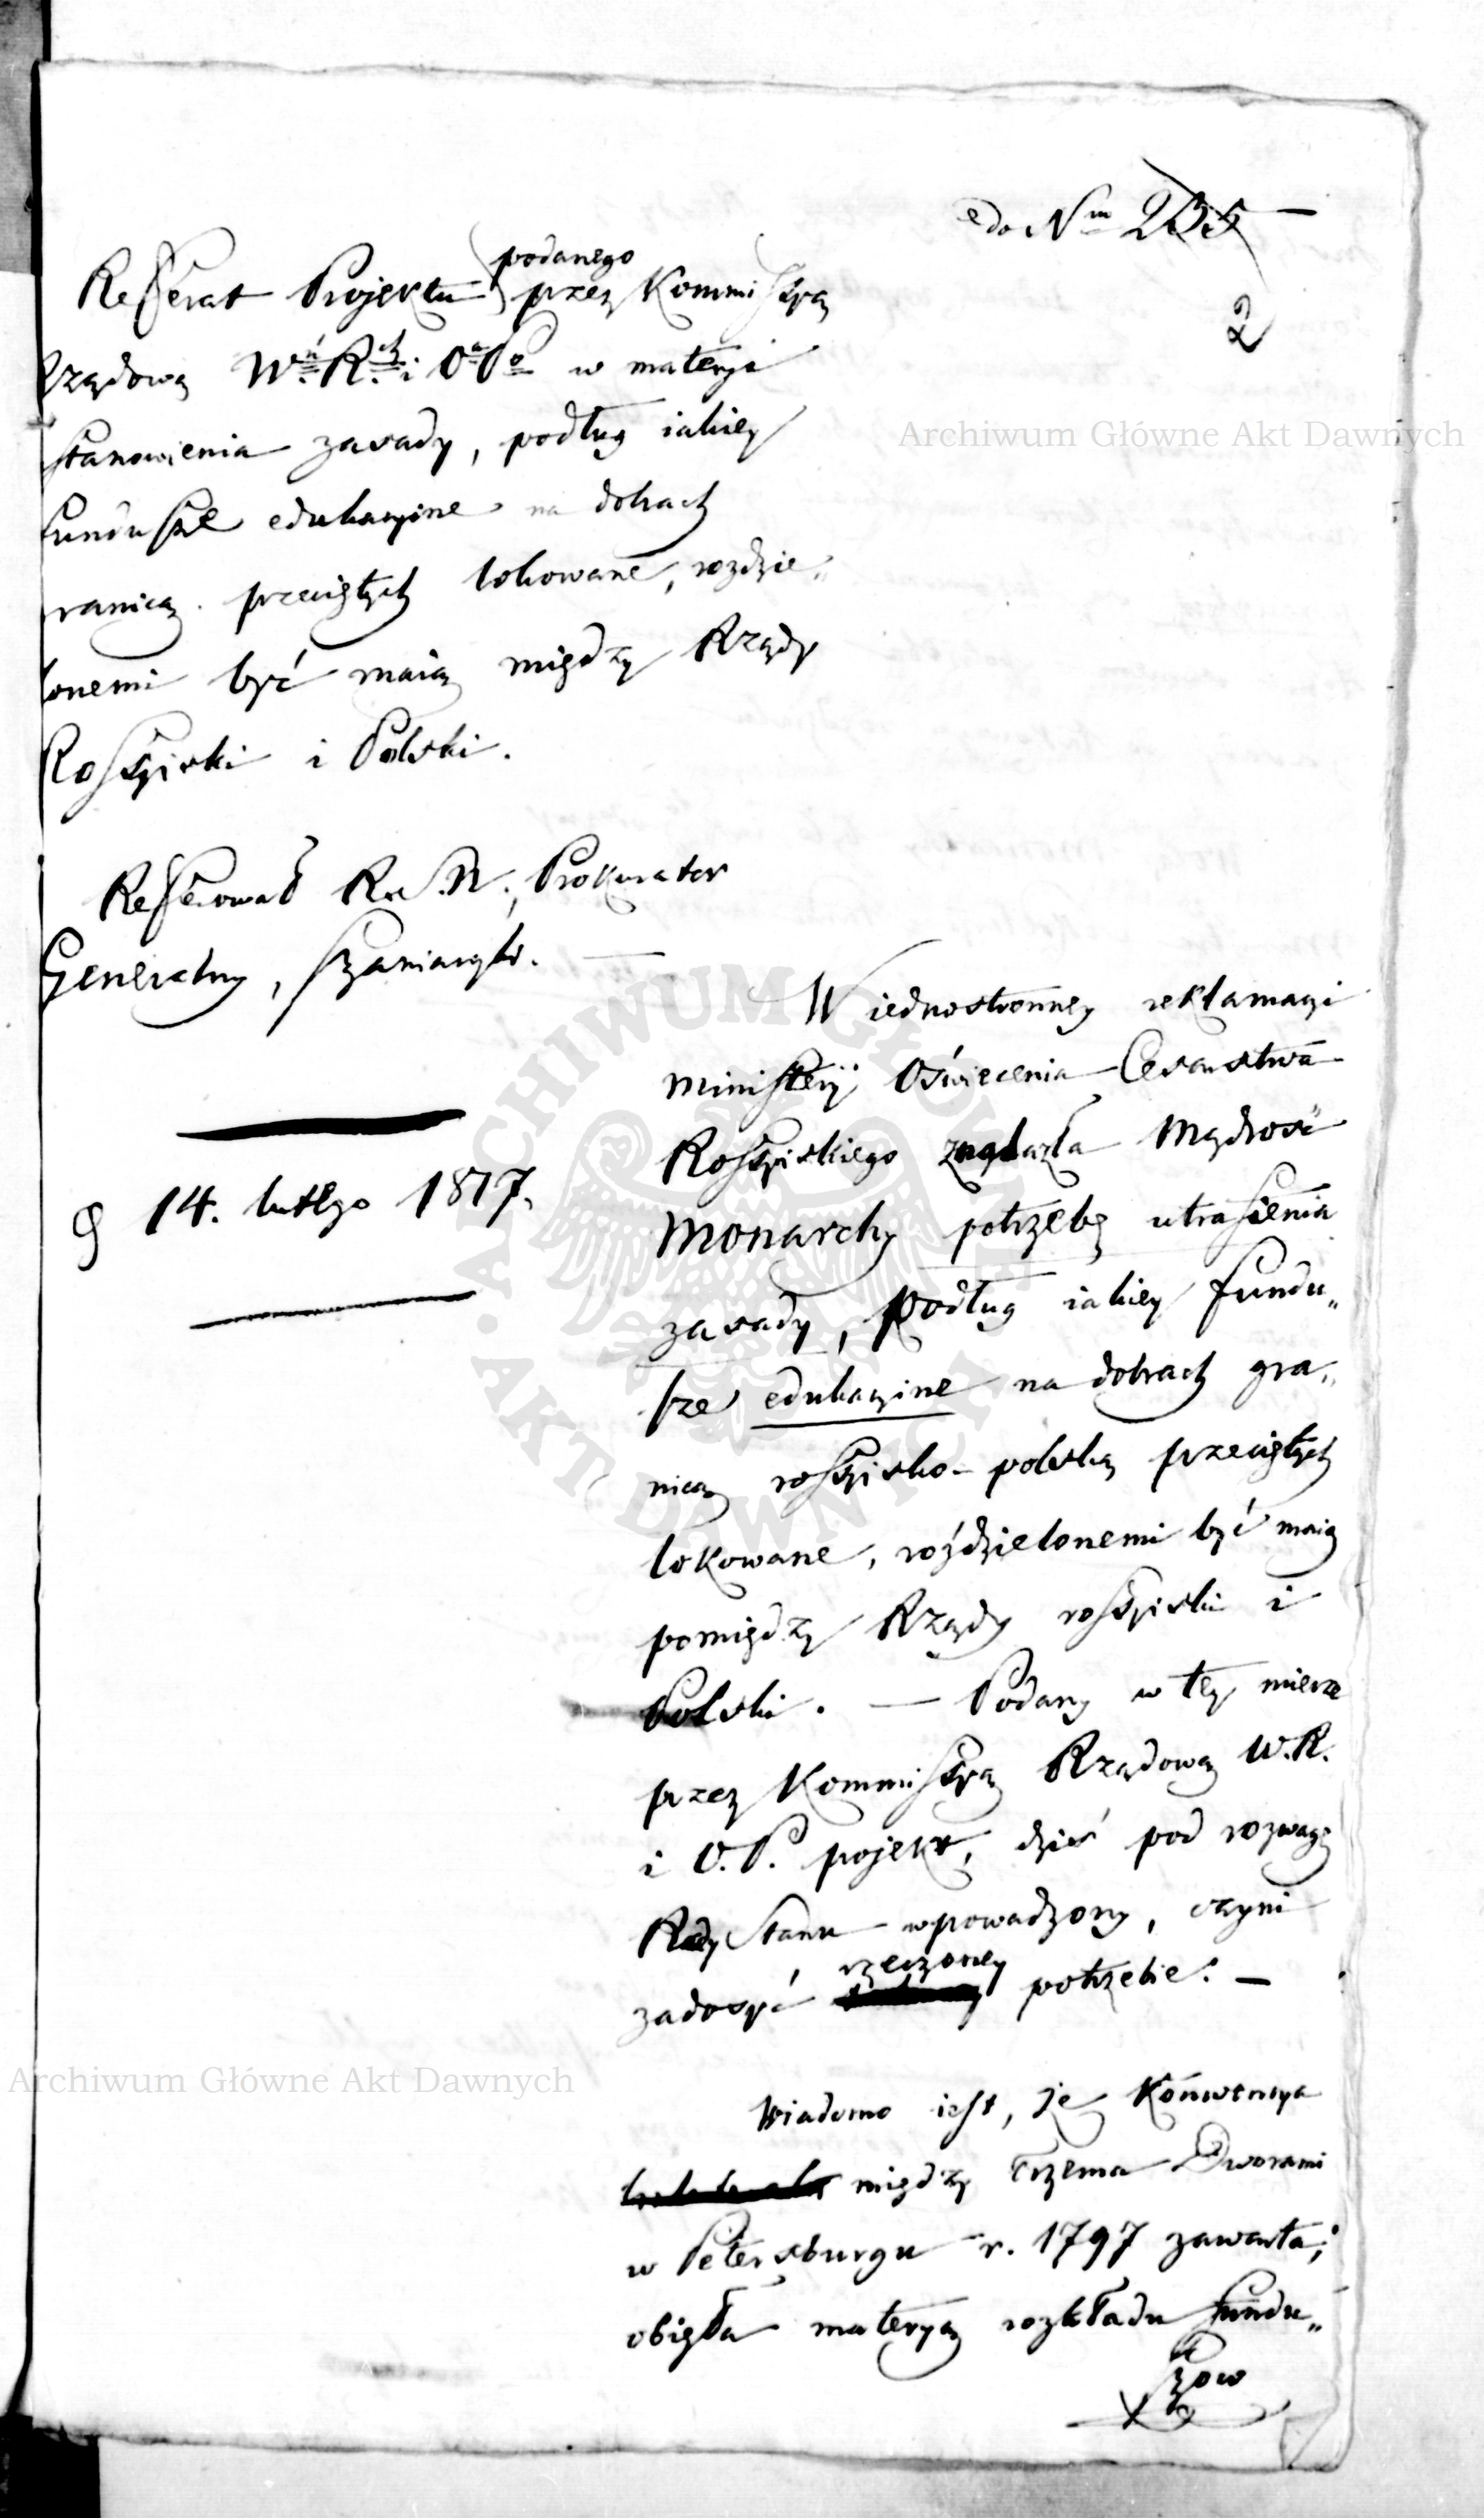 do Nru 255
2
Refferat Projektu podanego przez Kommissyą
Rządową W.ń R.ch i O.a P.o w materyi
stanowienia zasady, podług iakiey
fundusze edukacyine na dobrach
granicą przeciętych lokowane, rozdzie„
lonemi być maią między Rządy
Rossyiski i Polski.
Refferował R. S. N., Prokurator
Generalny, Szaniawski. —
d 14. lutego 1817.
W iednostronney reklamacyi
Ministeryi Oświecenia Cesarstwa
Rossyiskiego znalazła Mądrość
Monarchy potrzebę utrasienia
zasady, podług iakiey fundu„
sze edukacyine na dobrach gra„
nicą rossyisko-polską przeciętych
lokowane, rozdzielonemi być maią
pomiędzy Rządy rossyiski i
Polski. — Podany w tey mierze
przez Kommissyą Rządową W. R.
i O. P. pojekt, dziś pod rozwagę
Rady Stanu wprowadzony, czyni
zadosyć rzeczoney potrzebie. —
Wiadomo iest, że Konwencya
między trzema Dworami
w Petersburgu r. 1797 zawarta,
obięła materyą rozkładu fundu„
szow
Archiwum Główne Akt Dawnych
Archiwum Główne Akt Dawnych
ARCHIWUM GŁÓWNE • AKT DAWNYCH •